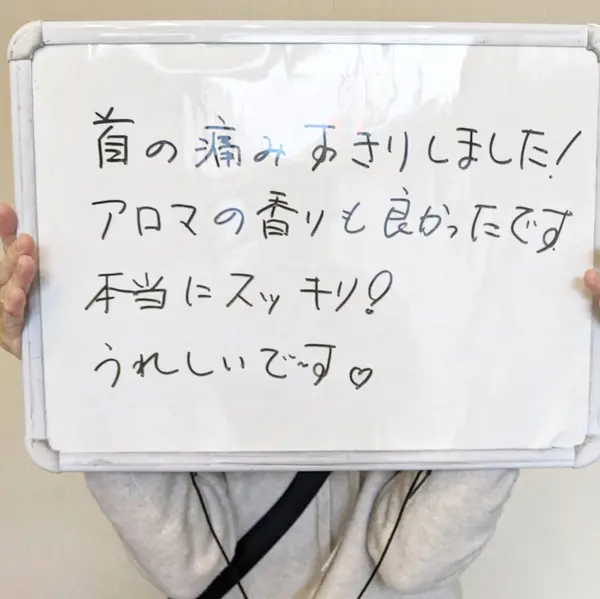 首の痛みすきりしました!
アロマの香りも良かったです
本当にスッキリ!
うれしいで~す♡